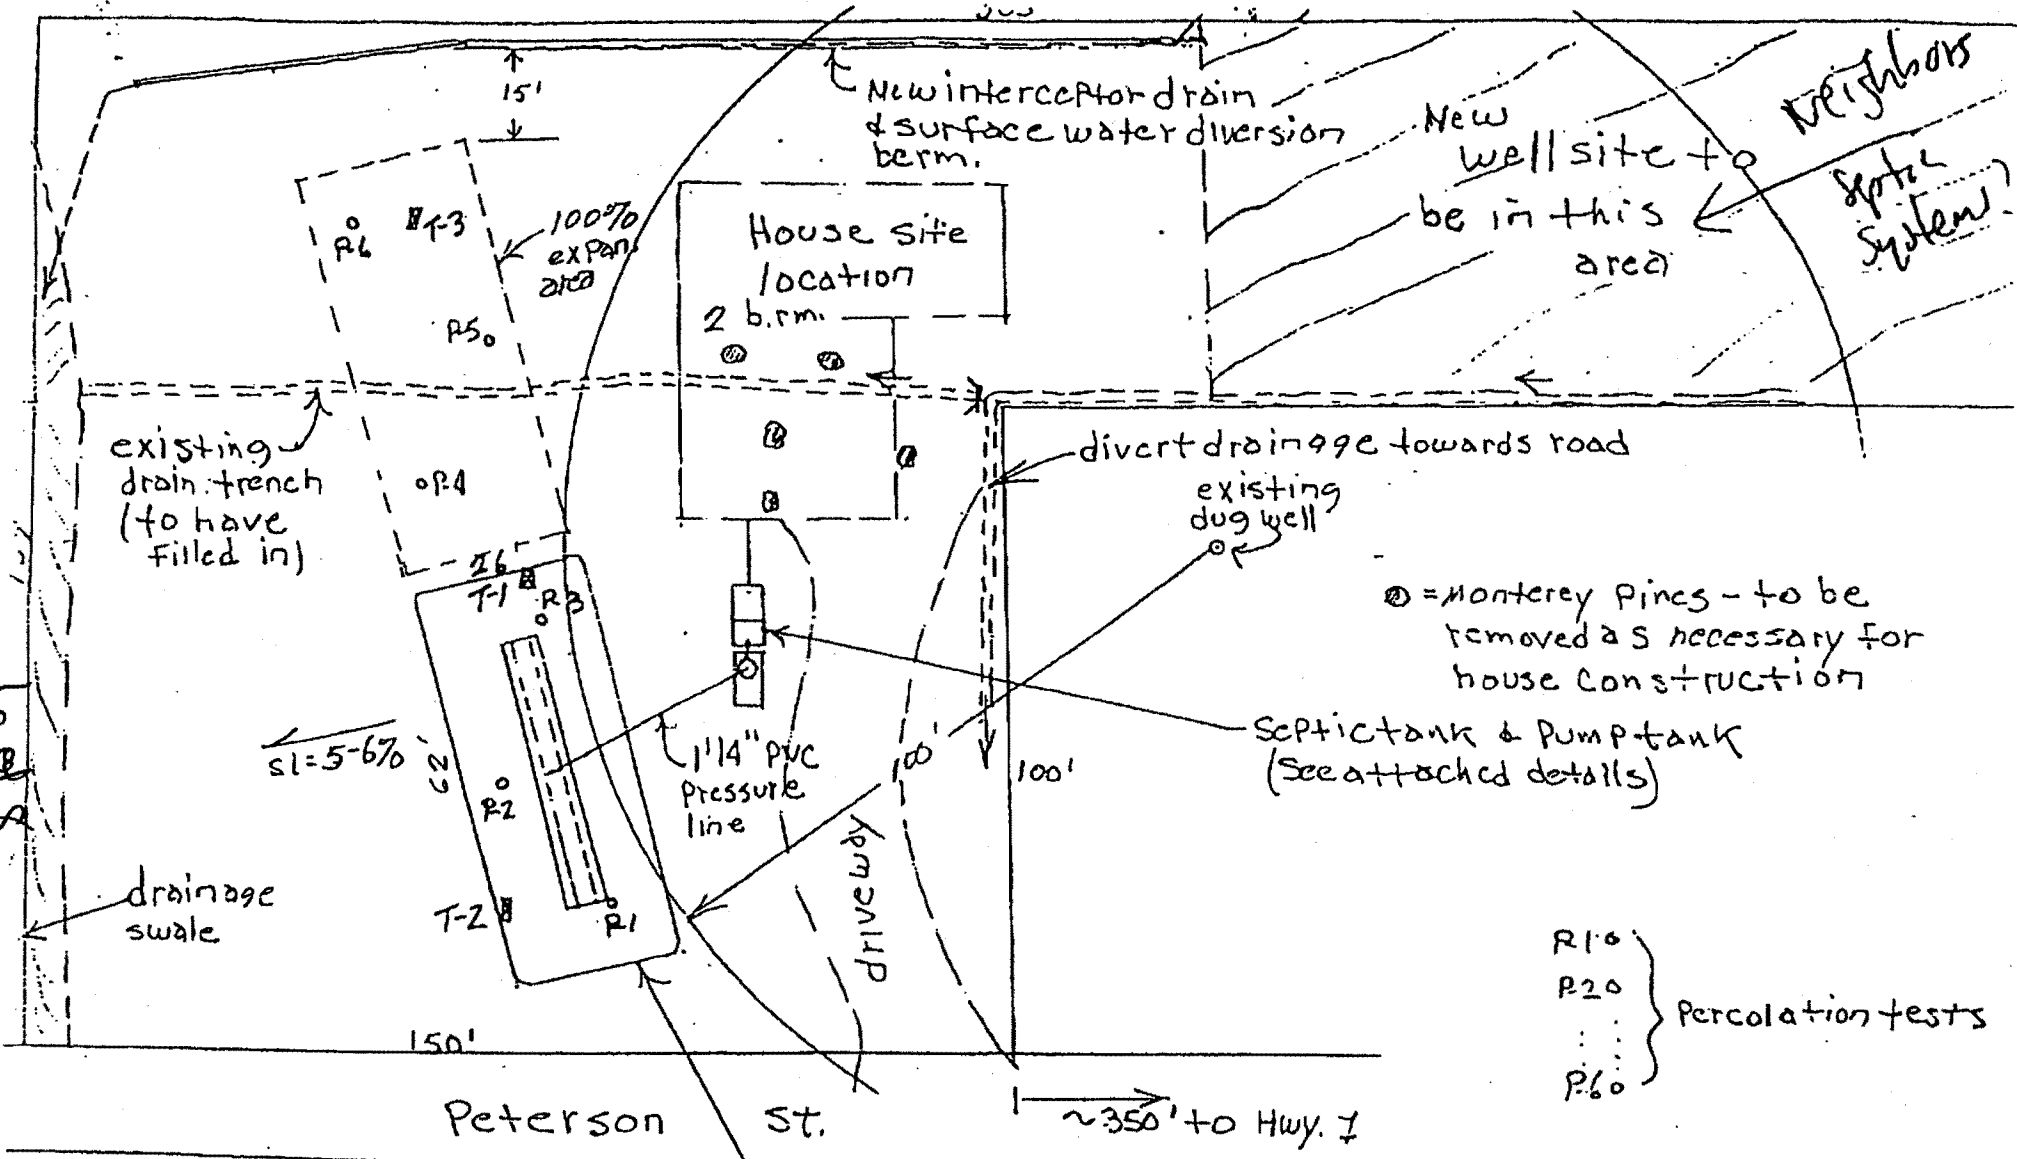 15'
New interceptor drain
& surface water diversion
berm.
Neighbors
Septic
System?
New
well site to
be in this
area
P.6
T-3
100%
expan.
area
House site
location
2 b.rm.
P.5
existing
drain trench
(to have
filled in)
P.4
divert drainage towards road
existing
dug well
26
T-1
P.3
= Monterey Pines - to be
removed as necessary for
house construction
sl=5-6%
62'
P.2
1 1/4" PVC
pressure
line
100'
100'
Septic tank & Pump tank
(See attached details)
driveway
drainage
swale
T-2
P.1
P.1
P.2
P.6
Percolation tests
150'
Peterson St.
~350' to Hwy. 1